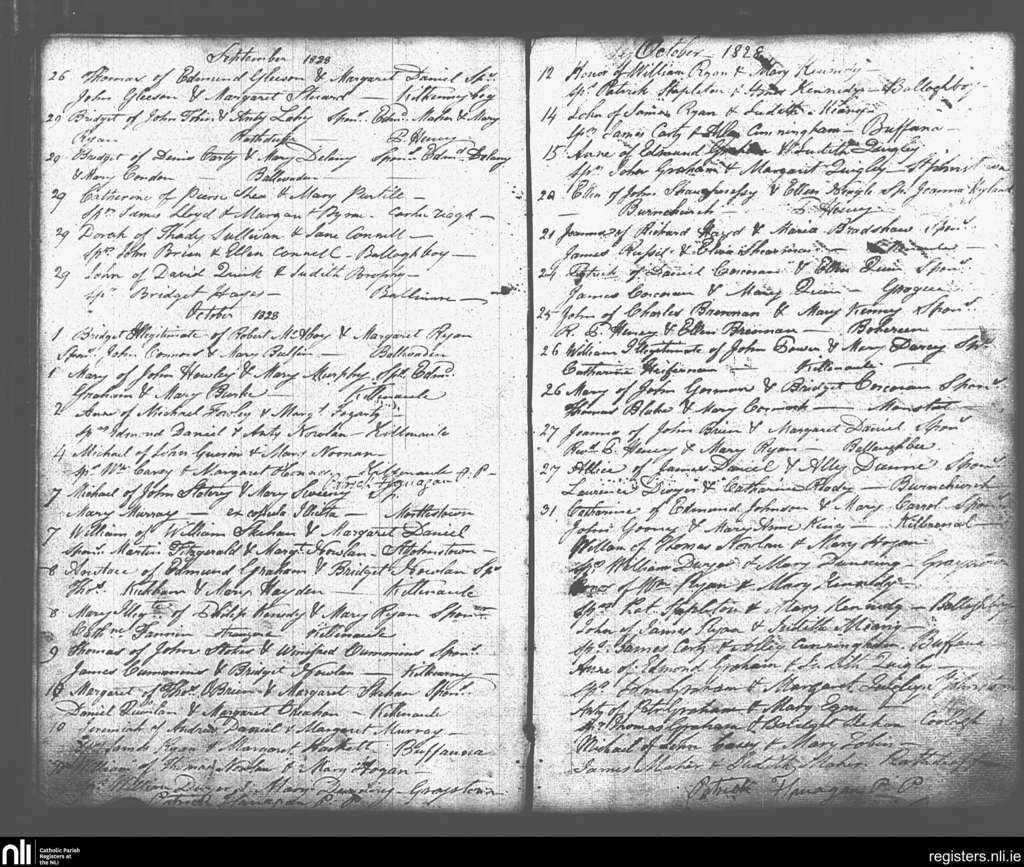 September 1828
26 Thomas of Edmund Gleeson & Margaret Daniel Spr.
John Gleeson & Margaret Steward — Kilkennybeg
20 Bridget of John & Anty Lahy Spon. Edm. Maher & Mary
Ryan P. Heney
20 Bridget of Denis Carty & Mary Delany Spon. Edmd. Delany
& Mary Condon — Ballinonden —
29 Catherine of Pierce Shea & Mary Purtill —
Spr. James Lloyd & Margaret Byrne
29 Dorah of Thady Sullivan & Jane Connell —
Spr. John Brien & Ellen Connell — Balloghboy —
29 John of David Quirk & Judith Brophy —
Spr. Bridget Hayes — Ballinure —
October 1828
1 Bridget Illegitimate of Robert McAboy & Margaret Ryan
Spon. John Connors & Mary Balfin — Ballinonden
1 Mary of John Hawley & Mary Murphy Spr. Edm.
Graham & Mary Burke — Killenaule
2 Anne of Michael Fowley & Margt. Fogerty
Sprs. Edmond Daniel & Anty Nowlan — Killenaule
4 Michael of John Guerin & Mary Noonan
Spr. Wm. Carey & Margaret — Killenaule P. P —
Patrick Flanagan
7 Michael of John Slatery & Mary Sweeny Sp.
Mary Murray — ex copula Illicita — Mortlestown
7 William of William Shehan & Margaret Daniel
Spon. Martin Fitzgerald & Margt. Nowlan — St Johnstown —
8 Anstace of Edmund Graham & Bridget Nowlan Spr.
Thos. Kickham & Mary Hayden — Killenaule
8 Mary Illegte. of Philip Kenedy & Mary Ryan Spon.
Cathne. Fannin Killenaule
9 Thomas of John Stokes & Winifred Cummins Spon.
James Cummins & Bridget Nowlan — Kilkenny —
10 Margaret of Thos. OBrien & Margaret Shehan Spon.
Daniel Quinlan & Margaret Shehan — Killenaule
10 Jeremiah of Andrew Daniel & Margaret Murray —
James Ryan & Margaret Hackett Buffanna
William of Thomas Nowlan & Mary Hogan —
Spr. William Dwyer & Mary — Graystown
Patrick Flanagan P. P.
October — 1828
12 Honor of William Ryan & Mary Kennedy —
Spr. Patrick Stapleton & Kennedy — Balloghboy —
14 John of James Ryan & Judith Meany —
Spr. James Carty & Alley Cunningham — Buffana —
15 Anne of Edmund Graham & Judith Quigley
Spr. John Graham & Margaret Quigley — St Johnstown
20 Ellen of John Shaughnessy & Ellen Spr. Joanna Hyland
— Burnchurch — P. Heney
21 Joanna of Richard & Maria Bradshaw Spon.
James Russel & — Killenaule —
24 Patrick of Daniel Corcoran & Ellen Quin Spon.
James Corcoran & Mary Quin — Grogue
25 John of Charles Brennan & Mary Kenney Spon.
R. E. Heney & Ellen Brennan — Bohereen —
26 William Illegitimate of John Power & Mary Darcy Spr.
Catharine Heffernan — Killenaule —
26 Mary of John Gorman & Bridget Corcoran Spon.
Thomas Blake & Mary Cormick —
27 Joanna of John Brien & Margaret Daniel Spon.
Revd. E. Heney & Mary Ryan —
27 Allice of James Daniel & Ally Dunne Spon.
Laurence Dwyer & Catharine — Burnchurch
31 Catharine of Edmund Johnson & Mary Carrol Spon.
John & Mary Anne — Killrenal —
William of Thomas Nowlan & Mary Hogan
Spr. William Dwyer & Mary — Graystown
Honor of Wm. Ryan & Mary Kennedy
Spr. Pat Stapleton & Mary Kennedy — Balloghboy
John of James Ryan & Judith Meany —
Spr. James Carty & Alley Cunningham. Buffana
Anne of Edmond Graham & Judith Quigley —
Spr. John Graham & Margaret Quigley St Johnstown
Anty of Patt Graham & Mary Egan
Spr. Thomas Graham & Bridget
Michael of John Casey & Mary Tobin —
James Maher & Judith Maher
Patrick Flanagan P. P
nli
Catholic Parish
Registers at
the NLI
registers.nli.ie